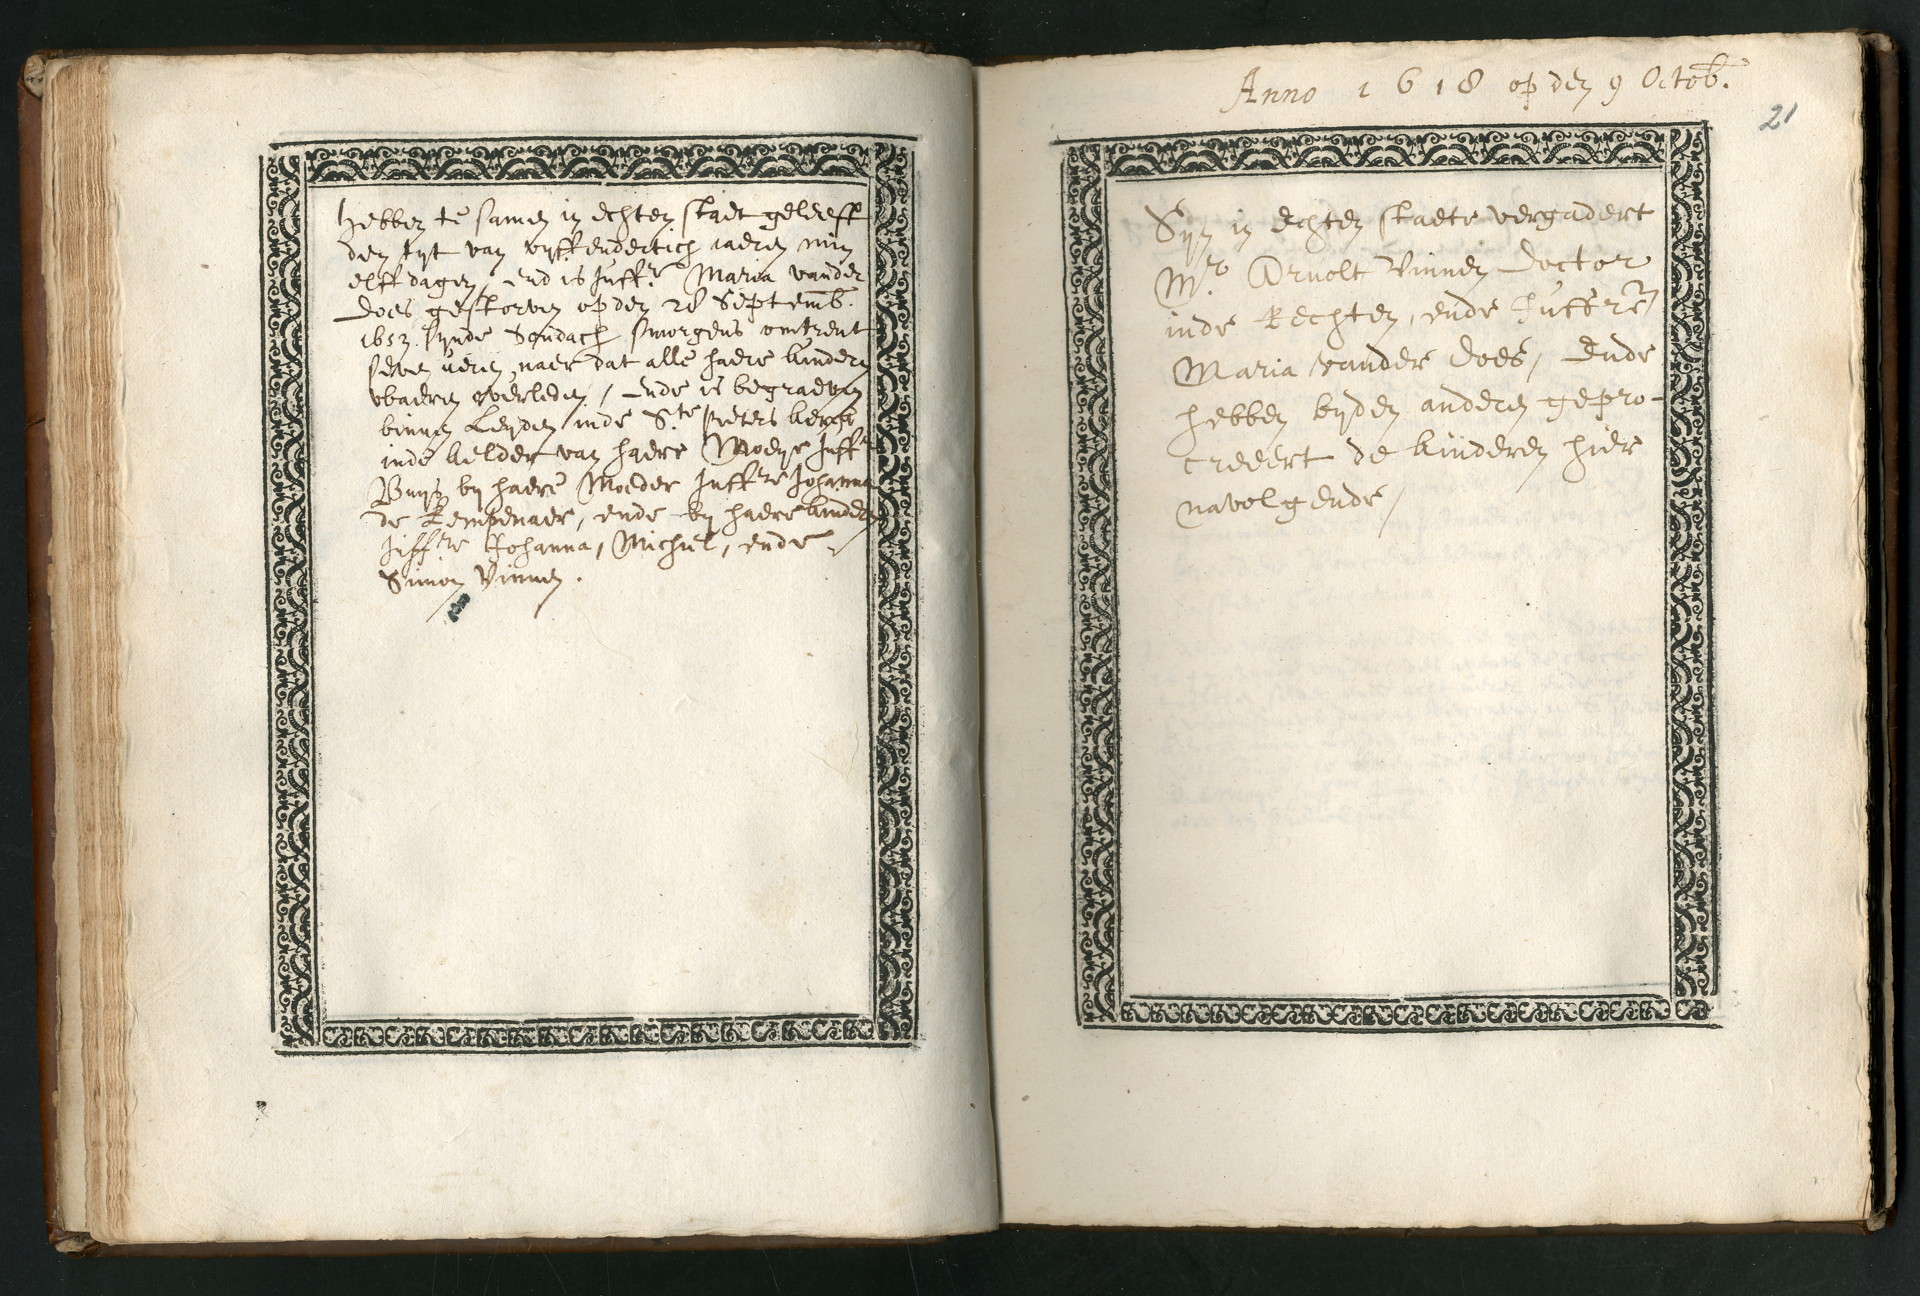 hebben te samen in echten staet geleeft
den tyt van vyffendertich iaeren min
elff dagen, end is Juff.re Maria vander
Does gestorven op den 28 Septemb.
1653. synde Sondach smorgens omtrent
seven uren, naer dat alle haere kinderen
waeren overleden / Ende is begraeven
binnen Leyden inde S.te Pieters kercke
inde kelder van haere Moeye Juff.re
Buys by haere Moeder Juff.re Johanna
de Kempenaer, ende by haere kinderen
Juff.re Johanna, Michiel, ende
Simon Vinnen.
Anno 1618 op den 9 Octob.
21
Syn in Echten staete vergadert
M.r Arnolt Vinnen Doctor
inde Rechten, ende Juffr.e
Maria vander Does, Ende
hebben byden anderen gepro-
creeert de kinderen hier
navolgende /